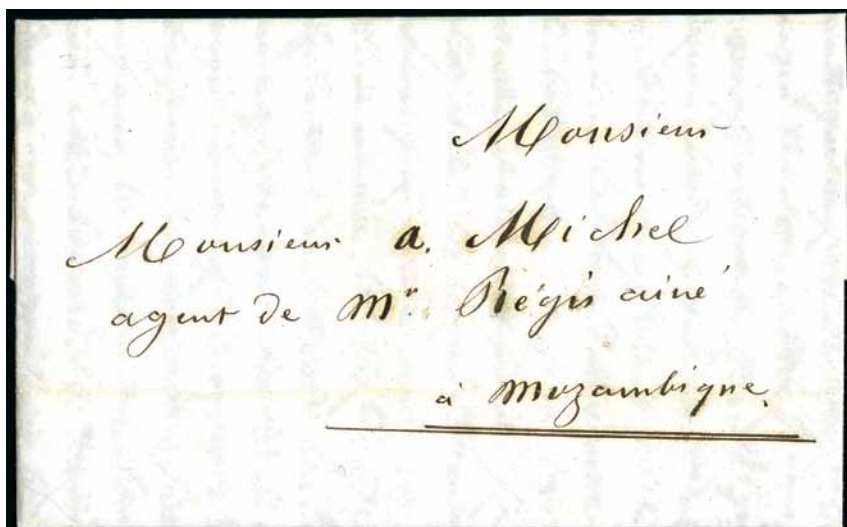 Monsieur
Monsieur a. Michel
agent de Mr. Régis ainé
à Mozambique.